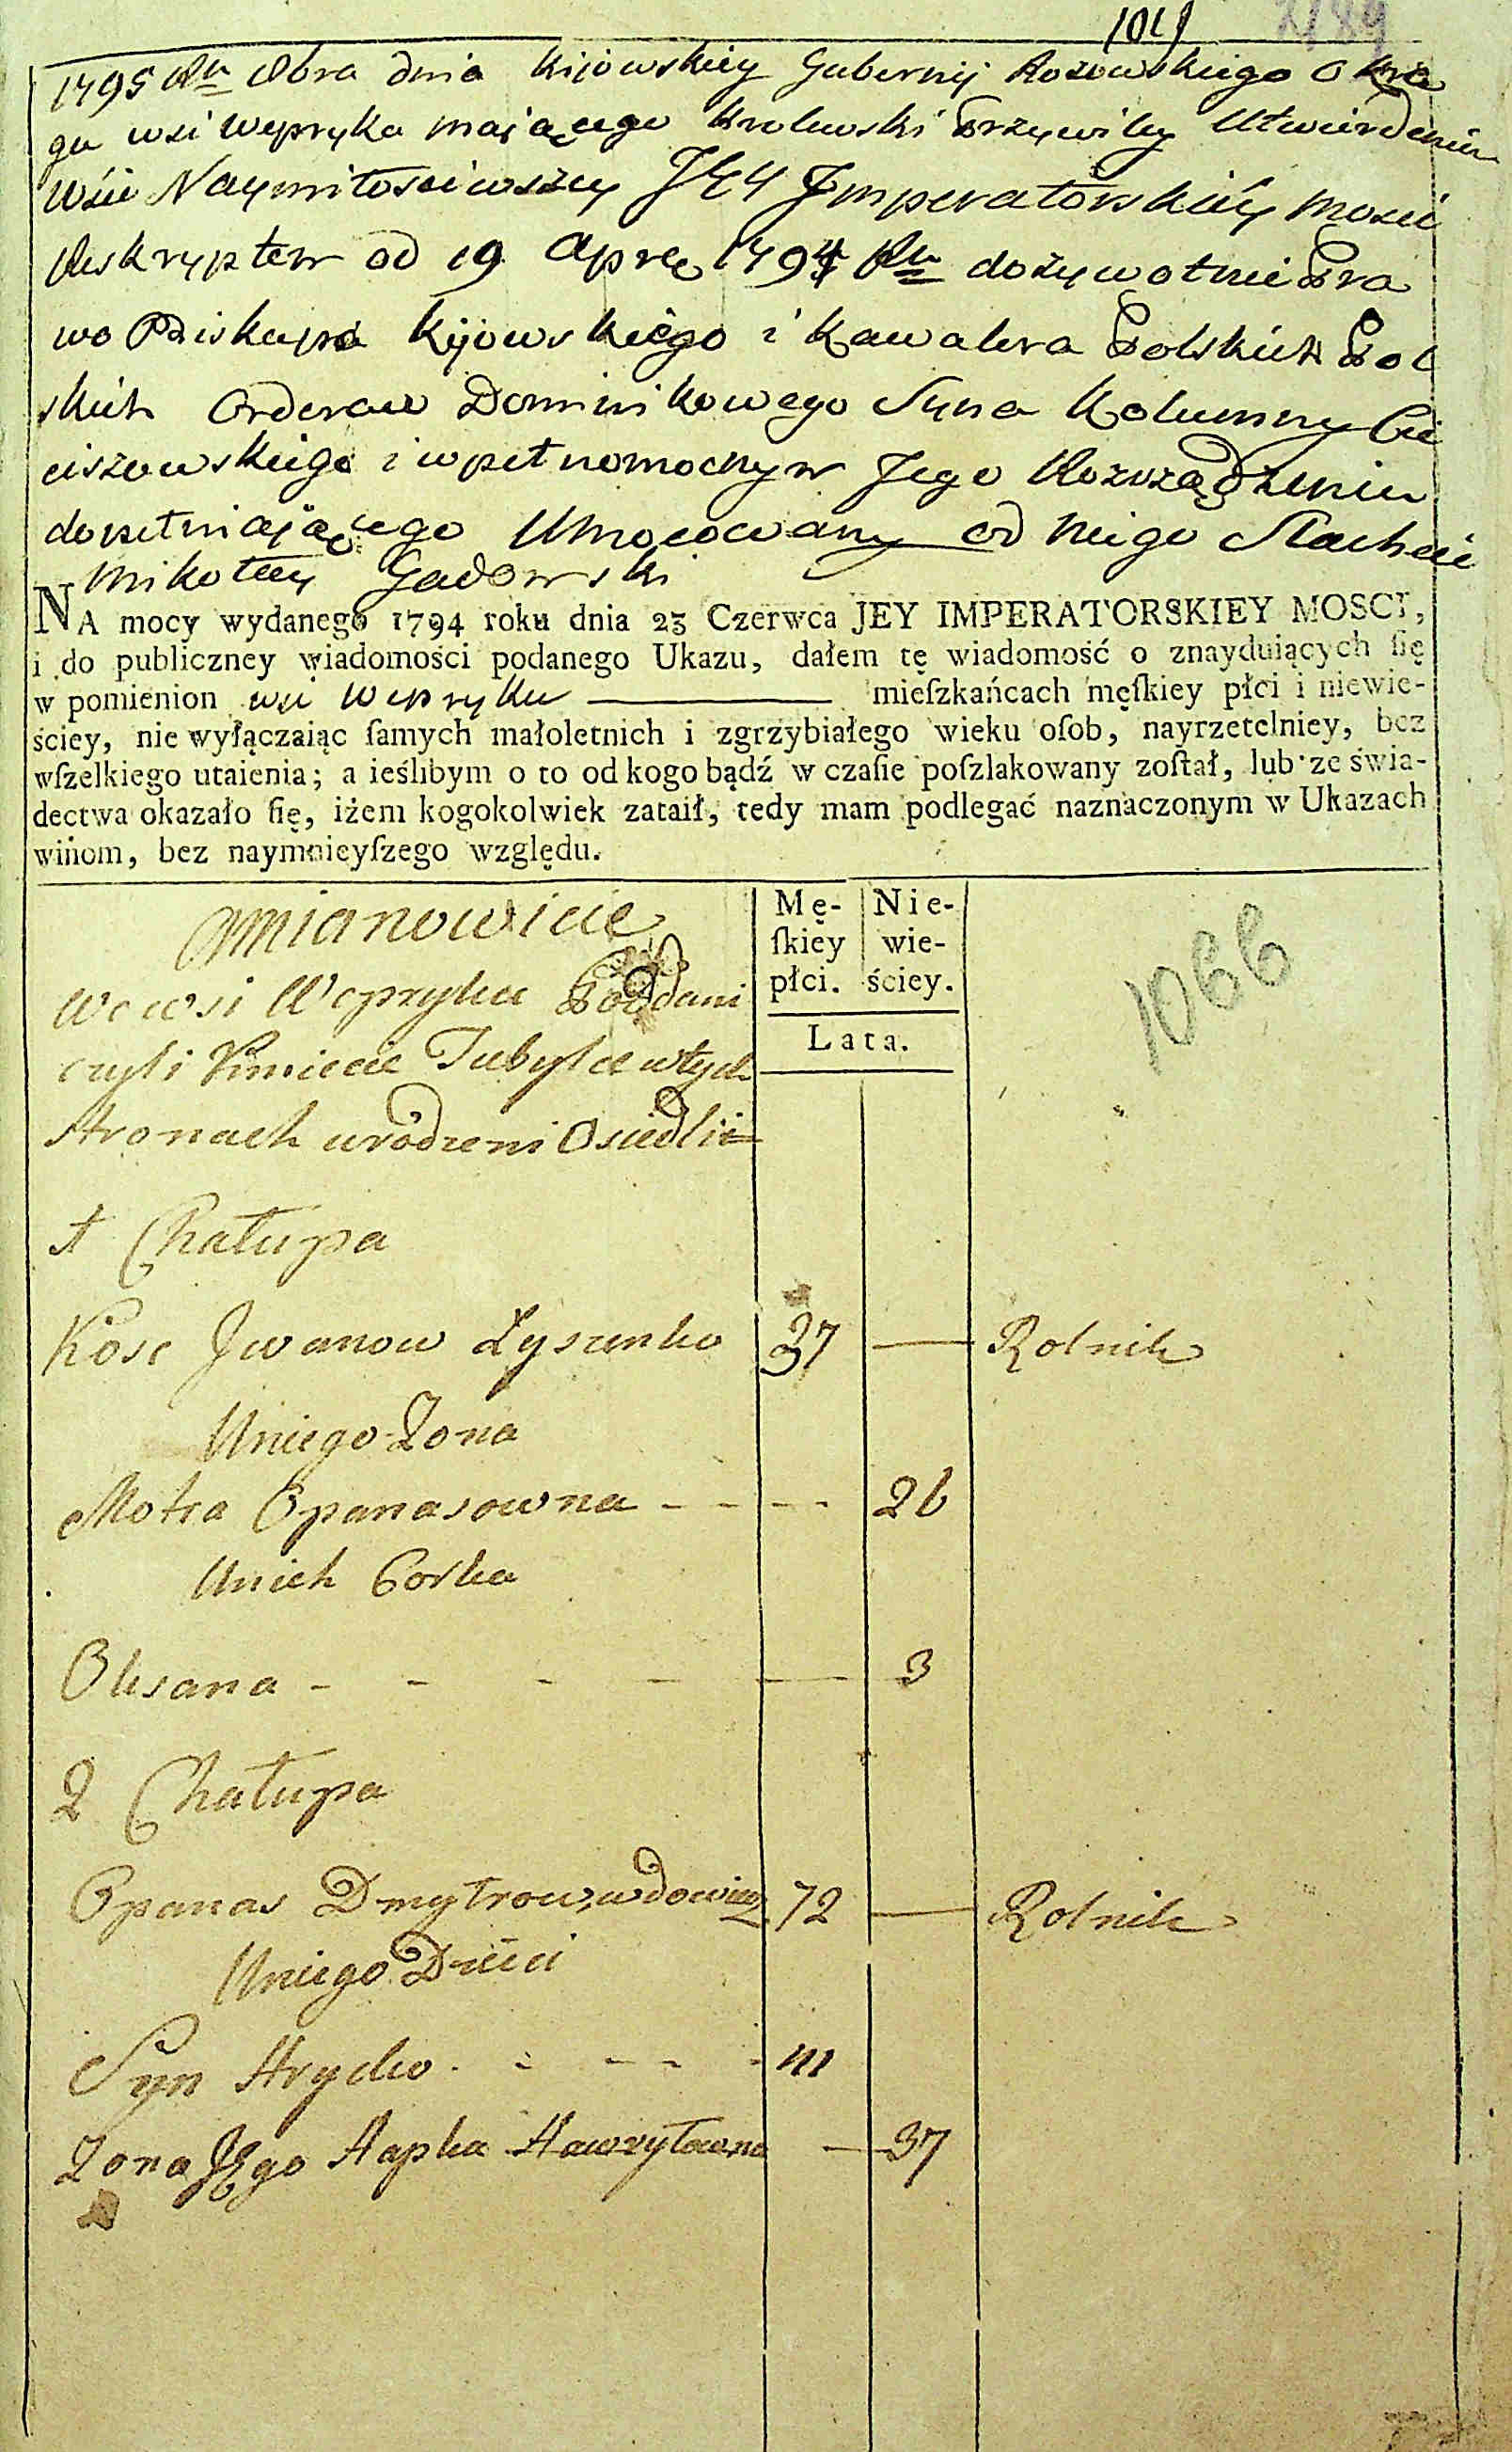 1011
2189
1795 Ru 8bra dnia Kijowskiey Gubernij Rozowskiego Okrę
gu wsi Wepryka maiącego Krolewski Przywiley Utwierdzeniu
wsie Naymiłosciwszey JEY Jmperatorskiey Mosci
Reskryptem od 19 Apreę 1794 Ru dożywotnie Pra
wo Biskupa Kijowskiego i Kawalera Polskich Pol
skich Orderow Dominikowego Syna Kolumny Cie
ciszowskiego i w pełnomocnym Jego Rozrządzeniu
dopełniaiącego Umocowany od niego Slachcic
Mikołay Gadowski
NA mocy wydanego 1794 roku dnia 23 Czerwca JEY IMPERATORSKIEY MOSCI,
i do publiczney wiadomości podanego Ukazu, dałem tę wiadomość o znayduiących ſię
w pomienion wsi Wepryku mieſzkańcach męſkiey płci i niewie-
ściey, nie wyłączaiąc ſamych małoletnich i zgrzybiałego wieku oſob, nayrzetelniey, bez
wſzelkiego utaienia; a ieślibym o to od kogo bądź w czaſie poſzlakowany zoſtał, lub ze świa-
dectwa okazało ſię, iżem kogokolwiek zataił, tedy mam podlegać naznaczonym w Ukazach
winom, bez naymnieyſzego względu.
Mianowicie
We wsi Wepryku Poddani
czyli Kmiecie Tubylce w tych
Stronach urodzeni Osiedli
Mę-
ſkiey
płci.
Nie-
wie-
ściey.
Lata.
1066
1 Chałupa
Kosc Jwanow Łyszenko 37 — Rolnik
Uniego Zona
Motra Opanasowna - - - - 26
Unich Corka
Olesana - - - - — 3
2 Chałupa
Opanas Dmytrow, wdowiec 72 — Rolnik
Uniego Dzieci
Syn Hrycko - - - - 41
Zona Jego Hapka Hawryłowna — 37